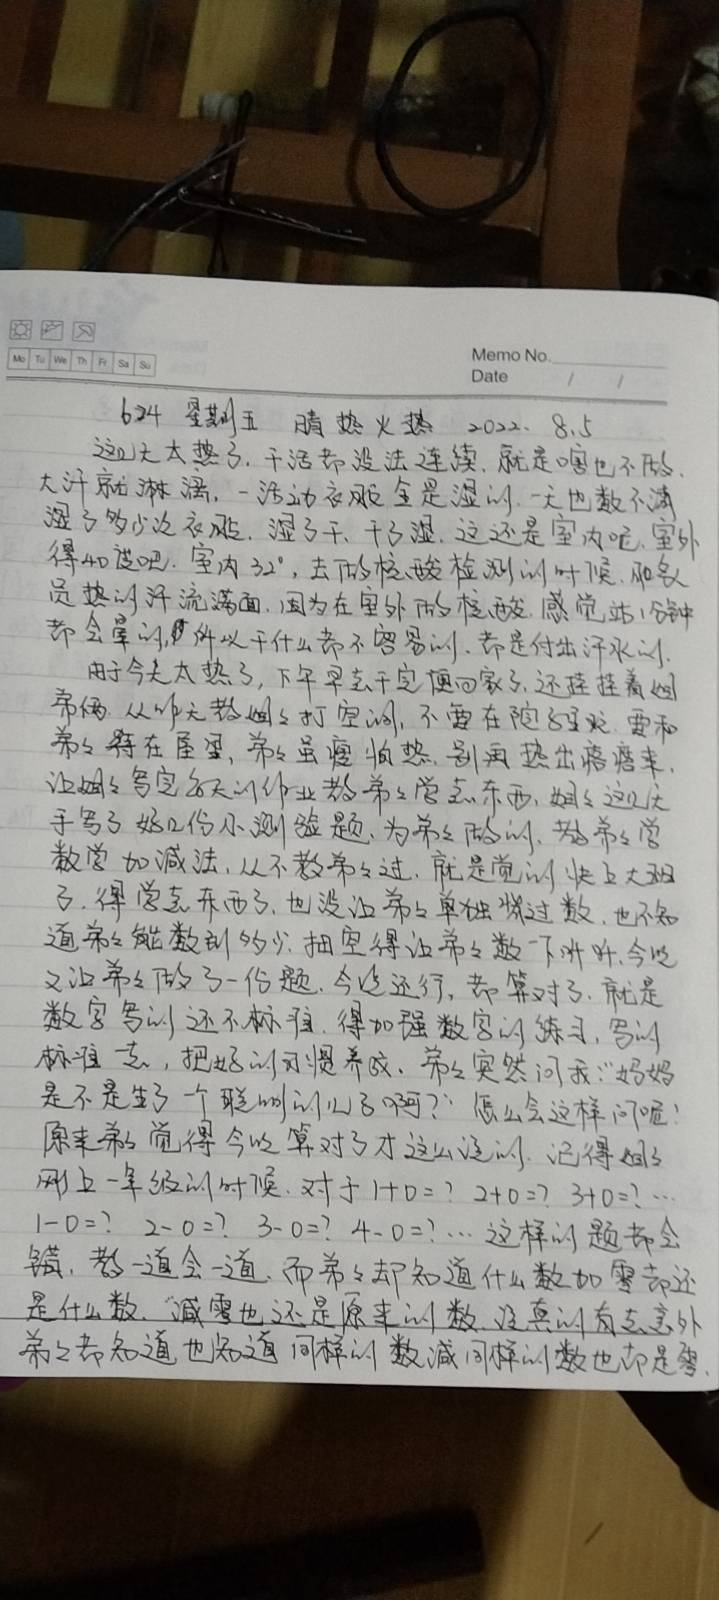 Memo No.
Mo Tu We Th Fr Sa Su
Date / /
624 星期五 晴热火热 2022.8.5
这几天太热了,干活都没法连续,就是啥也不做,
大汗就淋漓,一活动衣服全是湿的,一天也数不清
湿了多少次衣服,湿了干,干了湿,这还是室内呢,室外
得40度吧,室内32°,去做核酸检测的时候,那名
员热的汗流满面,因为在室外做核酸,感觉站1分钟
都会晕的,所以干什么都不容易的,都是付出汗水的。
由于今天太热了,下午早点干完便回家了,还挂挂着姐
弟俩,从昨天教姐姐打空调,不要在院子里玩,要和
弟弟待在屋里,弟弟虽瘦怕热,别再热出痞痞来,
让姐姐写完每天的作业教弟弟学点东西,姐姐这几天
手写了好几份小测验题,为弟弟做的,教弟弟学
数学加减法,从不教弟弟过,就是觉的快上大班
了,得学点东西了,也没让弟弟单独数过数,也不知
道弟弟能数到多少,抽空得让弟弟数一下听听,今晚
又让弟弟做了一份题,今晚还行,都算对了,就是
数字写的还不标准,得加强数字的练习,写的
标准点,把好的习惯养成,弟弟突然问我:“妈妈
是不是生了一个聪明的儿子啊?”怎么会这样问呢!
原来弟弟觉得今晚算对了才这么说的,记得姐姐
刚上一年级的时候,对于1+0=? 2+0=? 3+0=?…
1-0=? 2-0=? 3-0=? 4-0=?…这样的题都会
错,教一道会一道,而弟弟却知道什么数加零都还
是什么数,减零也还是原来的数,没真的有点意外
弟弟都知道,也知道同样的数减同样的数也都是零。